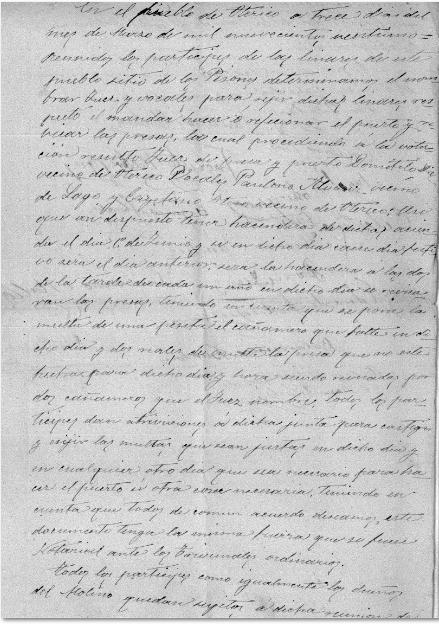 En el pueblo de Oterico a trece dias del
mes de Marzo de mil novecientos veintiuno
reunidos los participes de las linares de este
pueblo sitio de los Pisones determinamos el nom
brar Juez y vocales para rejir dichas linares res
pecto el mandar hacer o refecionar el puerto y re
bicar las presas, la cual procediendo a la vota
ción resultó Juez de presa y puerto Domitilo
vecino de Oterico Vocales Paulino Alvarez vecino
de Lago y vecino de Oterico. Asi
que an despuesto tener hacendera de dicha
da el dia 1º de Junio y si en dicho dia caese dia festi
vo será el dia anterior, sera la hacendera a las dos
de la tarde de cada un año en dicho dia se revisa
ran las presas, teniendo en cuenta que se pone la
multa de una peseta el cañamero que falte en di
cho dia y dos reales de multa la presa que no este
hecha para dicho dia y hora siendo mirados por
dos cañameros que el Juez nombre todos los par
ticipes dan atribuciones a dicha junta para castigar
y rejir las multas que sean justas en dicho dia y
en cualquier otro dia que sea necesario para ha
cer el puerto u otra cosa necesaria, teniendo en
cuenta que todos de comun acuerdo deseamos, este
documento tenga la misma fuerza que si fuese
Notarial ante los Tribunales ordinarios.
Todos los participes como igualmente los dueños
del Molino quedan sujetos a dicha reunion de